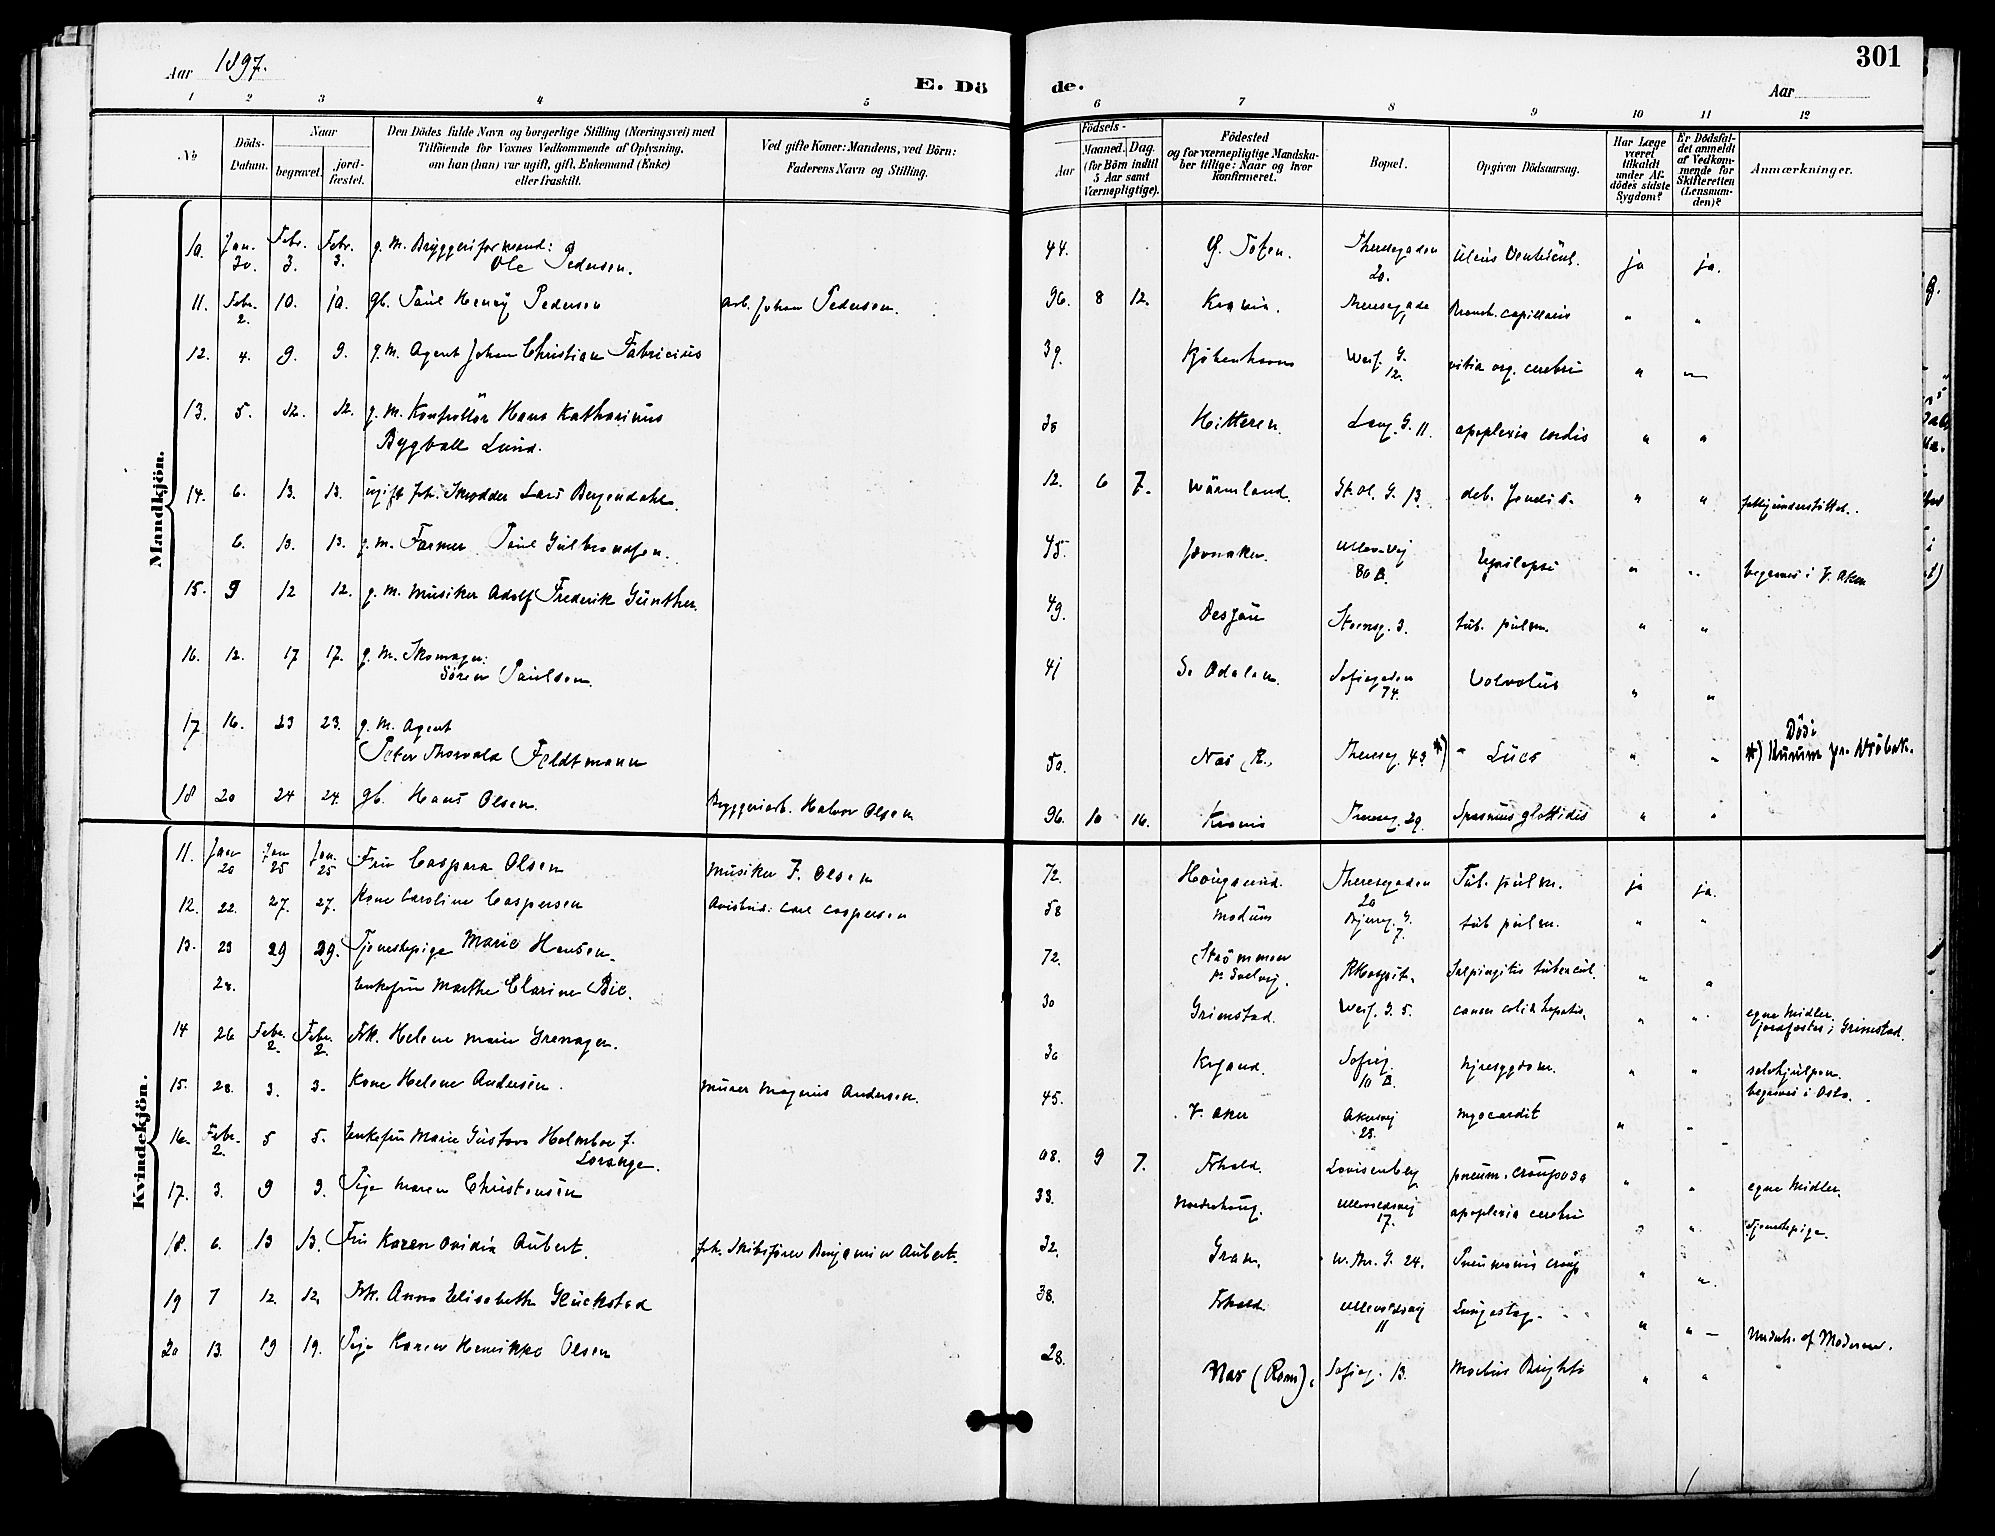 Aar 1897.
E. Dö
de.
301
Aar
1 2 3 4 5 6 7 8 9 10 11 12
No
Döds-Datum.
Naar
begravet.
jord-fæstet.
Den Dödes fulde Navn og borgerlige Stilling (Næringsvei) med
Tilföiende for Voxnes Vedkommende af Oplysning,
om han (hun) var ugift, gift, Enkemand (Enke)
eller fraskilt.
Ved gifte Koner: Mandens, ved Börn:
Faderens Navn og Stilling.
Födsels-
Aar
Maaned.
Dag.
(for Börn indtil
5 Aar samt
Værnepligtige).
Födested
og for værnepligtige Mandska-
ber tillige: Naar og hvor
Konfirmeret.
Bopæl.
Opgiven Dödsaarsag.
Har Læge
været
tilkaldt
under Af-
dödes sidste
Sygdom?
Er Dödsfal-
det anmeldt
af Vedkom-
mende for
Skifteretten
(Lensman-
den)?
Anmærkninger.
Mandkjön.
10. Jan. 30. Febr. 3. Febr. 3. g. M. Bryggeriformand: Ole Pedersen. 44. Ø. Toten. Theresegaden 20. Ulcus Ventricul. ja ja.
11. Febr. 2. 10. 10. gb. Paul Henry Pedersen arb. Johan Pedersen. 96. 8 12. Krania. Theresegade 1 Bronch. capillaris " "
12. 4. 9. 9. g. M. Agent Johan Christian Fabricius 39. Kjøbenhavn Werg. G. 12. vitia org. cerebri "
13. 5. 12. 12. g. M. Kontrollör Hans Katharinus
Bygball Lund. 38 Hitteren. Lang. G. 11. apoplexia cordis " "
14. 6. 13. 13. ugift fh. Skrædder Lars Bergendahl. 12. 6 7. Wärmland. Skol. G. 13. deb. senilis. " " fattigunderstöttet.
6. 13. 13. g. M. Farmer Paul Gulbrandsen. 45. Jevnaker. Ullev. vej 80 B. Epilepsi " " begraves i V. Aker
15. 9 12 12. g. M. Musiker Adolf Frederik Günther. 49. Dessau Stensg. 3. tub. pulm. " "
16. 12. 17 17. g. M. Skomager:
Sören Paulsen. 41 S. Odalen. Sofiegaden 74. Volvolus " "
17. 16. 23 23. g. M. Agent
Peter Thorvald Feldtmann 50. Næs (R., Thereseg. 43 *) Lues " " Död i
*) Hurum pr. Dröbak.
18 20 24 24. gb. Hans Olsen. Bryggeriarb. Halvor Olsen 96. 10 16. Krania Thereseg. 29. Spasmus glottidis " "
Kvindekjön.
11. Jan 20 Jan 25 Jan. 25 Fru Caspara Olsen Musiker J. Olsen 72. Hougsund. Theresegaden 20 Tub. pulm. ja ja.
12. 22. 27. 27. Kone Caroline Caspersen Avisbud: Carl Caspersen 58 Modum Bjerreg. G. 7. tub pulm. " "
13. 23 29 29. Tjenestepige Marie Hansen. 72. Strömmen
p. Svelvig. RHospit. Salpingitis tubercul. " "
28. Enkefru Marthe Clarine Bie. 30 Grimstad. Werg. G. 5. cancer coli & hepatis. " " egne Midler.
jordfæstes i Grimstad.
14 26 Febr. 2. Febr. 2. Frk. Helene Marie Grenager. 30 Krsand. Sofieg. 10 B. nyresygdom. " " selvhjulpen.
15. 28. 3. 3. Kone Helene Andersen. Murer Magnus Andersen. 45. V. Aker Akersvej 28. myocardit " " begraves i Oslo.
16. Febr. 2. 5 5. Enkefru Marie Gustava Holmboe f.
Lorange. 08. 9 7. Frhald. Lovisenberg pneum. crouposa " " egne Midler.
17. 3. 9 9. Pige Maren Christensen 33. Norderhoug. Ullevoldsvej 17. apoplexia cerebri " " Tjenestepige.
18. 6. 13 13. Fru Karen Ovidia Aubert. fh. Skibsfører Benjamin Aubert. 32. Gran. W. Thr. G. 24. Pneumonia croup " "
19 7 12. 12. Frk. Anna Elisabeth Glückstad 38. Frhald. Ullevoldsvej 11 Lungeslag. " " Underh. af Moderen.
20 13. 19 19. Pige Karen Henrikke Olsen 28. Næs (Rom). Sofieg. 13. Morbus Brightii " "